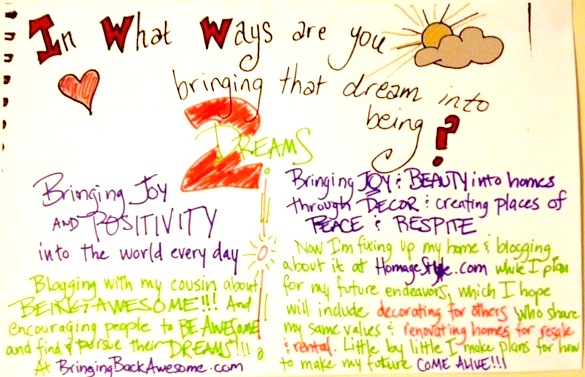 In What Ways are you
bringing that dream into
being?
2
DREAMS
Bringing Joy
AND POSITIVITY
into the world every day
Blogging with my cousin about
BEING AWESOME!!! And
encouraging people to BE AWESOME
and find & pursue their DREAMS!!!
At BringingBackAwesome.com
Bringing JOY & BEAUTY into homes
through DECOR & creating places of
PEACE & RESPITE
Now I'm fixing up my home & blogging
about it at HomageStyle.com while I plan
for my future endeavors, which I hope
will include decorating for others who share
my same values & renovating homes for resale
& rental. Little by little I make plans for how
to make my future COME ALIVE!!!